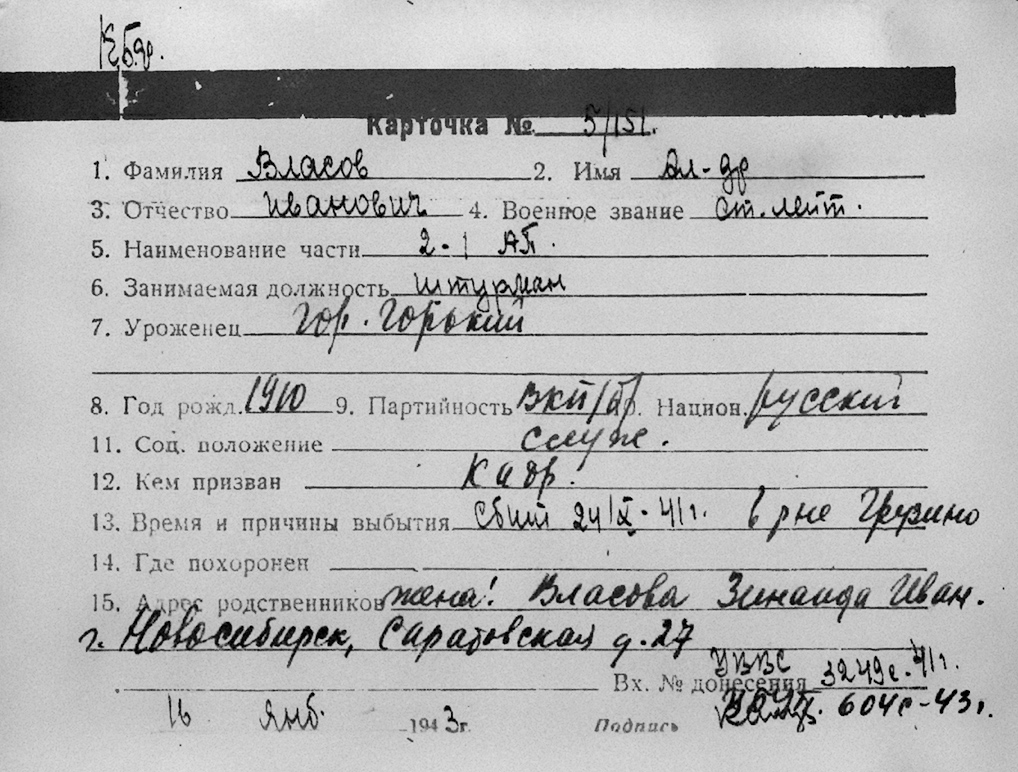 Карточка № 5/151.
1. Фамилия Власов 2. Имя Ал-др
3. Отчество Иванович 4. Военное звание ст. лейт.
5. Наименование части 2-1 АП.
6. Занимаемая должность штурман
7. Уроженец гор. Горький
8. Год рожд. 1910 9. Партийность ВКП/б/ 0. Национ. русский
11. Соц. положение служ.
12. Кем призван Кадр.
13. Время и причины выбытия Сбит 24/X-41г. в р-не Грузино
14. Где похоронен
15. Адрес родственников жена: Власова Зинаида Иван.
г. Новосибирск, Саратовская д. 27
УВВС
Вх. № донесения 3249с-41г.
16 янв. 1943г. Подпись 604с-43г.